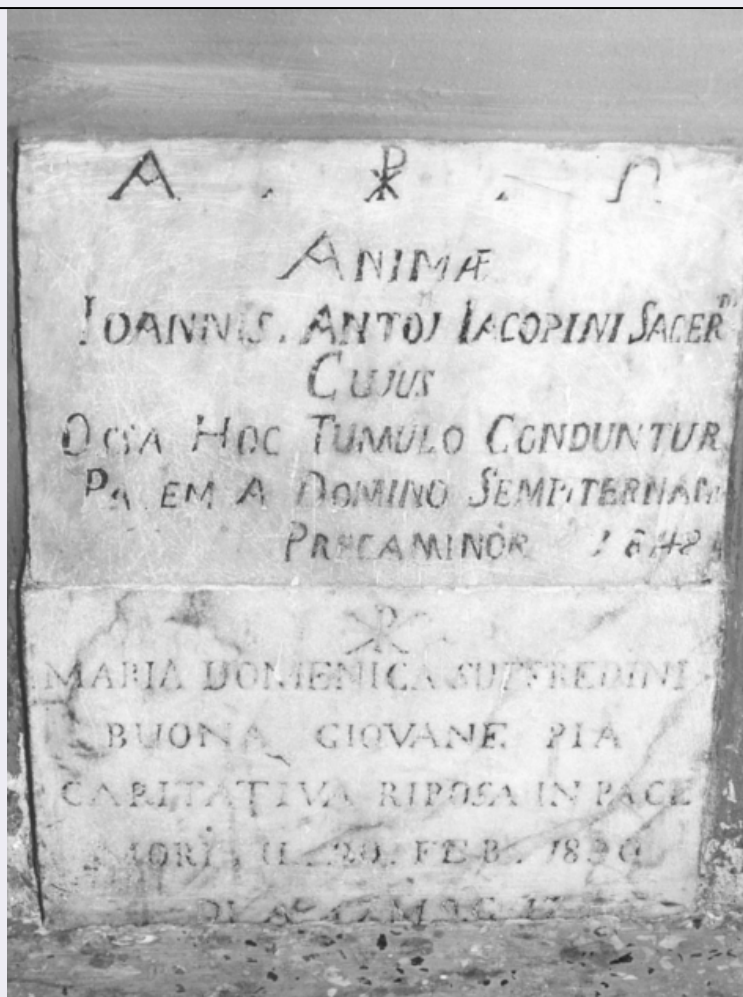 A . ☧ . Ω
ANIMÆ
IOANNIS. ANTOJ IACOPINI SACER
CUJUS
OSSA HOC TUMULO CONDUNTUR
PA EM A DOMINO SEMPITERNAM
PRECAMINOR
☧
MARIA DOMENICA SUFFREDINI
BUONA GIOVANE PIA
CARITATIVA RIPOSA IN PACE
MORI IL 20. FEB.